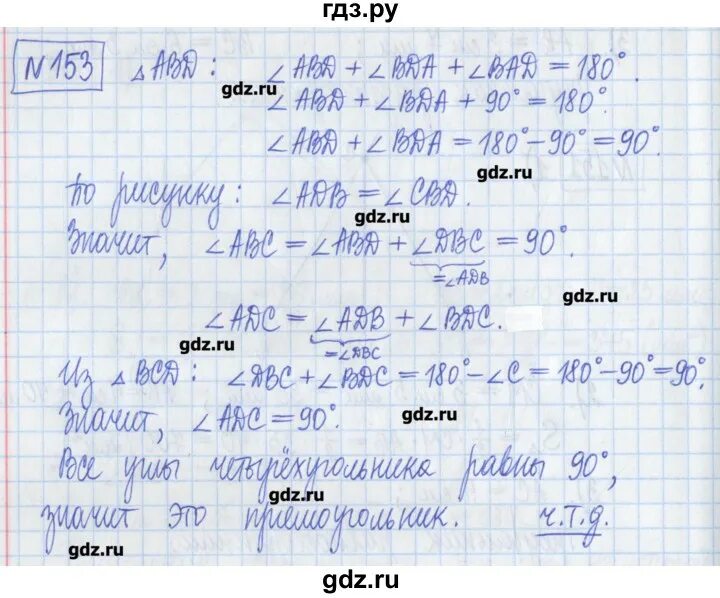 гдз.ру
№153 △ABD: ∠ABD + ∠BDA + ∠BAD = 180°.
gdz.ru
∠ABD + ∠BDA + 90° = 180°.
∠ABD + ∠BDA = 180° - 90° = 90°.
gdz.ru
По рисунку: ∠ADB = ∠CBD.
gdz.ru
Значит, ∠ABC = ∠ABD + ∠DBC = 90°.
=∠ADB
gdz.ru
∠ADC = ∠ADB + ∠BDC.
gdz.ru
=∠DBC
Из △BCD: ∠DBC + ∠BDC = 180° - ∠C = 180° - 90° = 90°.
Значит, ∠ADC = 90°.
gdz.ru
Все углы четырёхугольника равны 90°,
gdz.ru
значит это прямоугольник. ч.т.д.
gdz.ru
gdz.ru